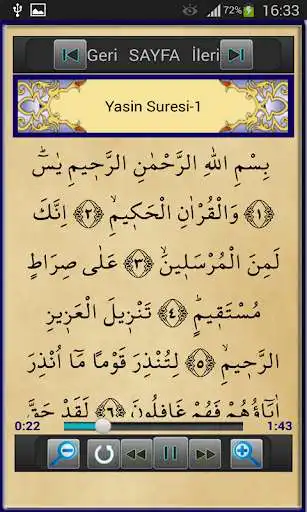 72% 16:33
Geri SAYFA İleri
Yasin Suresi-1
بِسْمِ اللهِ الرَّحْمٰنِ الرَّحٖيمِ يٰسٓ
﴿١﴾ وَالْقُرْاٰنِ الْحَكٖيمِۙ ﴿٢﴾ اِنَّكَ
لَمِنَ الْمُرْسَلٖينَۙ ﴿٣﴾ عَلٰى صِرَاطٍ
مُسْتَقٖيمٍؕ ﴿٤﴾ تَنْزٖيلَ الْعَزٖيزِ
الرَّحٖيمِۙ ﴿٥﴾ لِتُنْذِرَ قَوْمًا مَٓا اُنْذِرَ
اٰبَٓاؤُهُمْ فَهُمْ غَافِلُونَ ﴿٦﴾ لَقَدْ حَقَّ
0:22 1:43